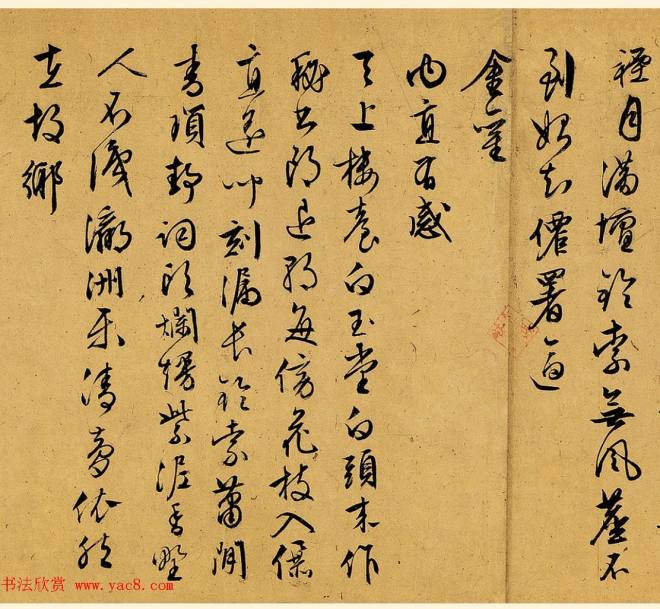 月滿壇鈴索無風塵不
到始知僊署逼
金鑾
內直有感
天上樓臺白玉堂白頭來作
秘書郎退朝每傍花枝入儤
直遙聞刻漏長鈴索蕭閒
青瑣靜詞頭爛熳紫泥香野
人不識瀛洲樂清夢依然
在故鄉
书法欣赏 www.yac8.com